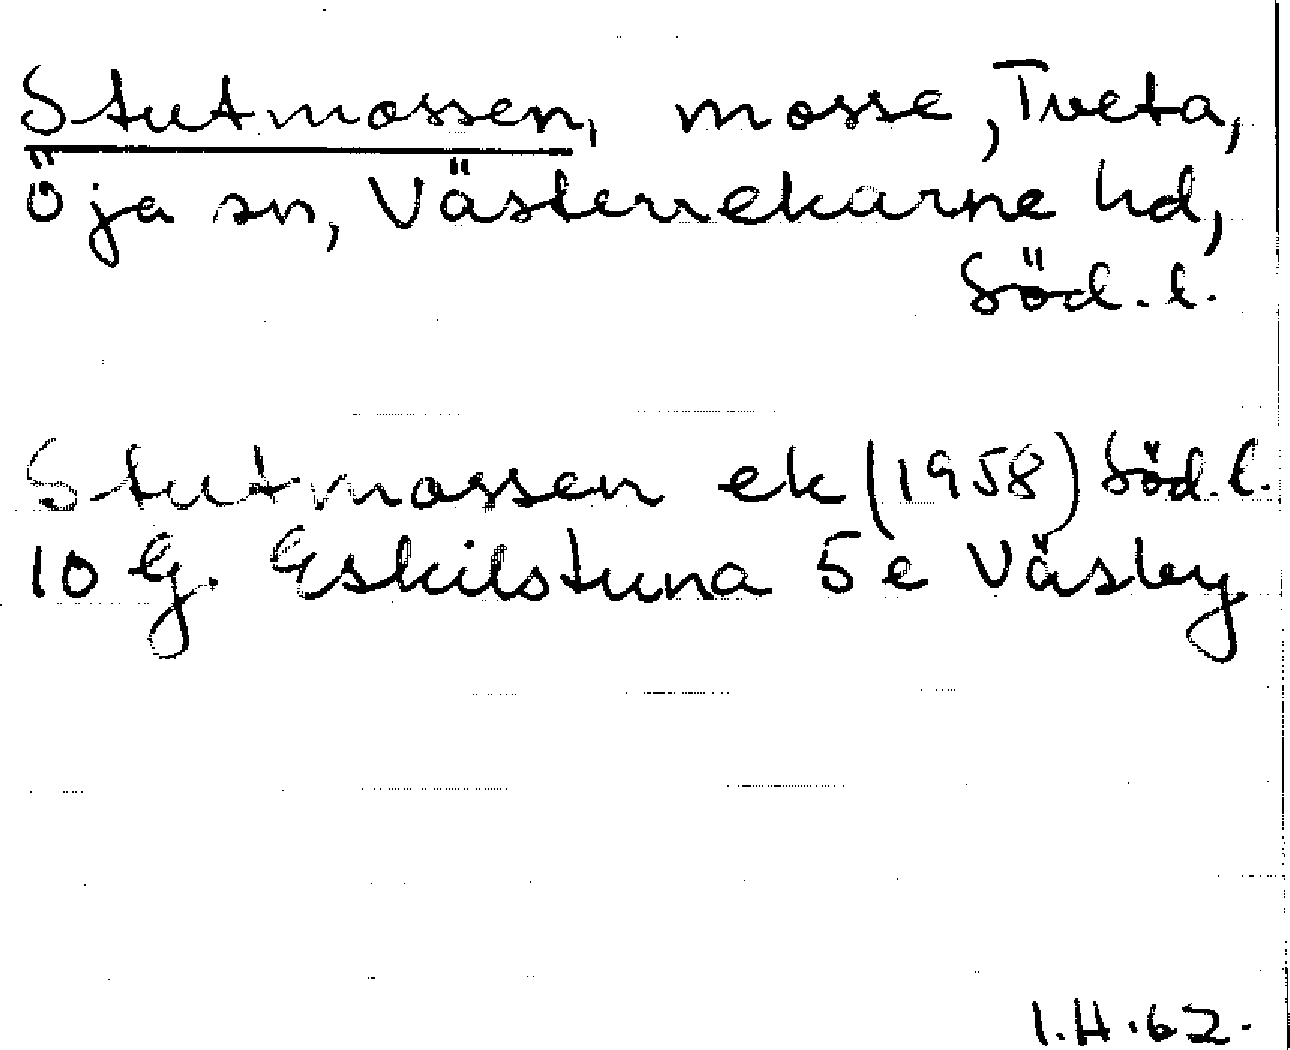 Stutmossen, mosse, Tveta,
Öja sn, Västerrekarne hd,
Söd. l.
Stutmossen ek (1958) Söd. l.
10 G. Eskilstuna 5 e Väsby
I.H. 62.